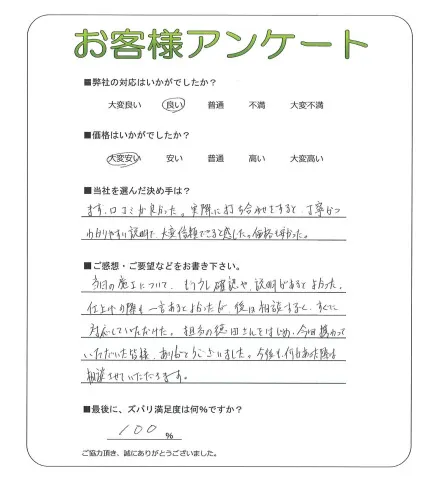 お客様アンケート
■弊社の対応はいかがでしたか？
大変良い 良い 普通 不満 大変不満
■価格はいかがでしたか？
大変安い 安い 普通 高い 大変高い
■当社を選んだ決め手は？
まず、口コミが良かった。実際に打ち合わせをすると、丁寧かつ
わかりやすい説明で、大変信頼できると感じた。価格も安かった。
■ご感想・ご要望などをお書き下さい。
当日の施工について、もう少し確認や、説明があるとよかった。
仕上げの際も一言あるとよかったが、後は相談すると、すぐに
対応していただけた。担当の徳田さんをはじめ、今回携わって
いただいた皆様、ありがとうございました。今後も何かあった際は
相談させていただきます。
■最後に、ズバリ満足度は何％ですか？
100 ％
ご協力頂き、誠にありがとうございました。